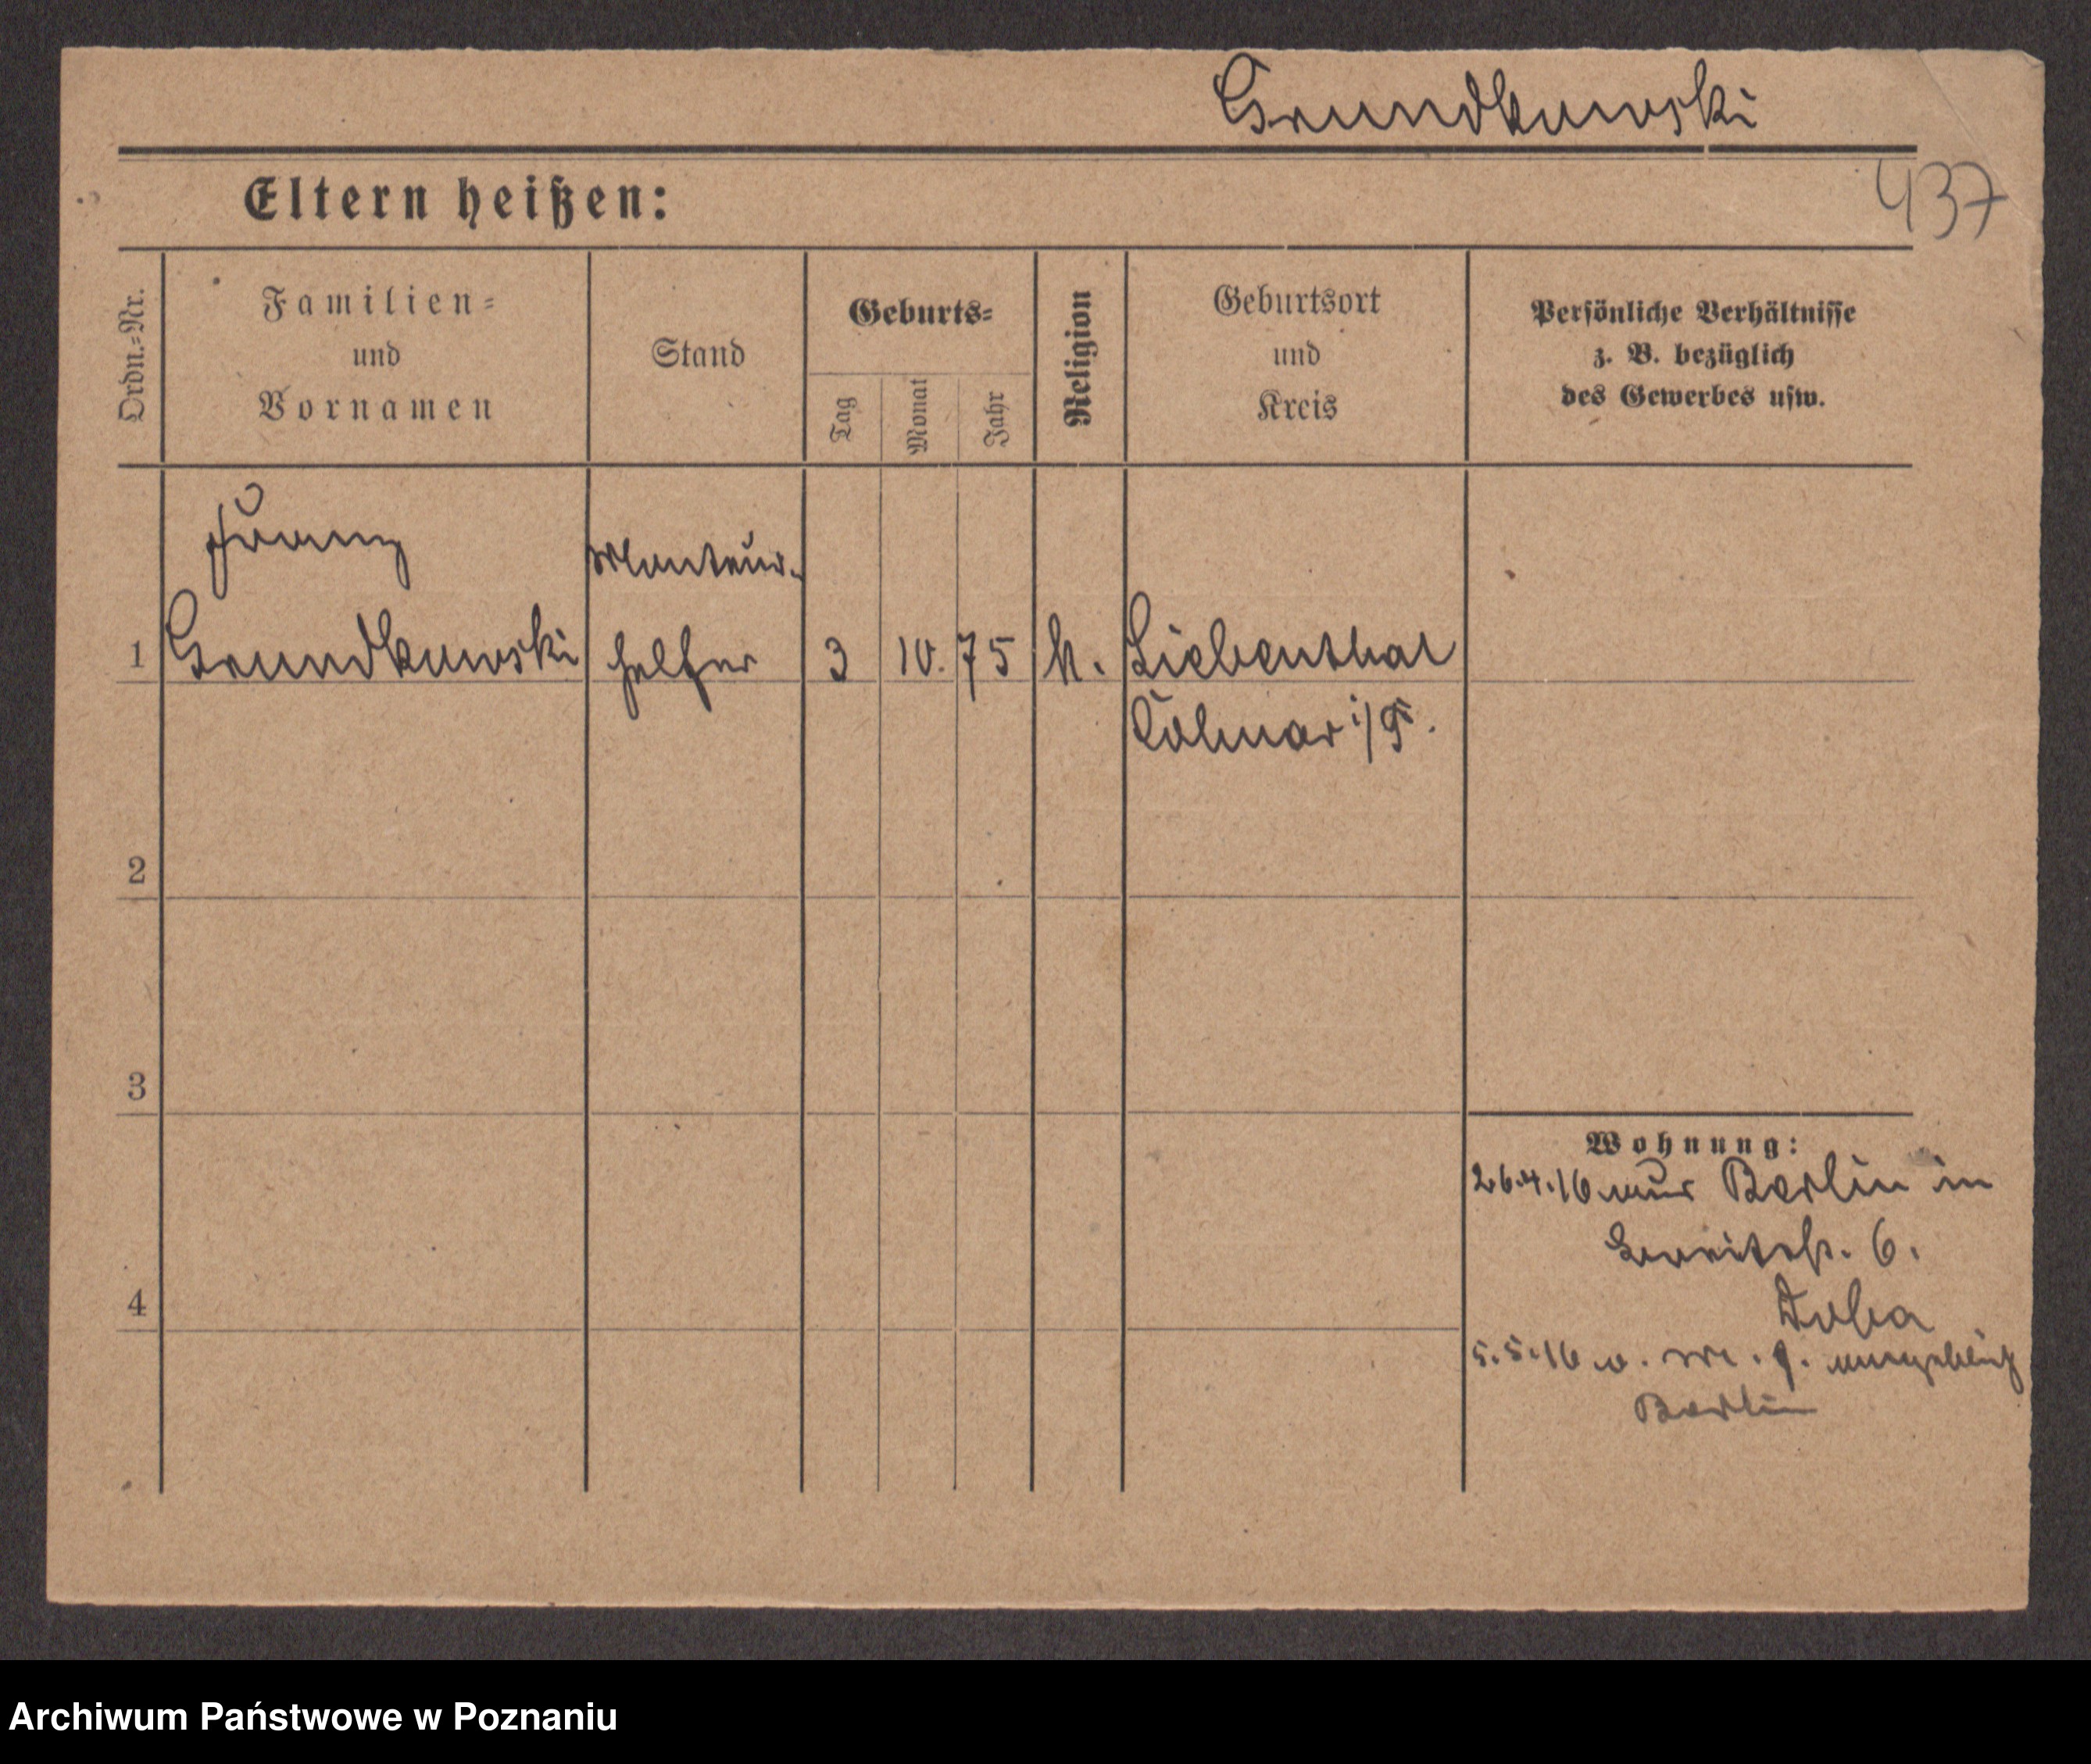 Grundkowski
437
Eltern heißen:
Ordn.-Nr.
Familien-
und
Vornamen
Stand
Geburts-
Tag
Monat
Jahr
Religion
Geburtsort
und
Kreis
Persönliche Verhältnisse
z. B. bezüglich
des Gewerbes usw.
Franz
Monteur-
1 Grundkowski helfer 3 10. 75 k. Liebenthal
Colmar i/P.
2
3
Wohnung:
26.4.16 aus Berlin in
Breitestr. 6.
4
5.5.16 angeblich
Berlin
Archiwum Państwowe w Poznaniu